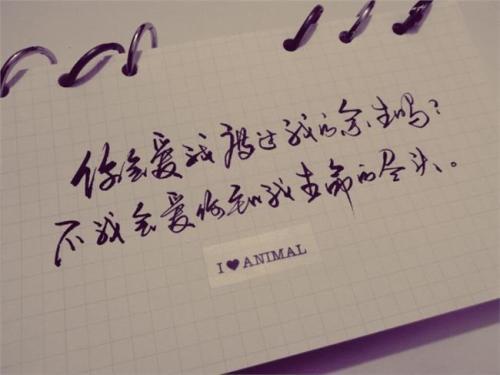 你会爱我超过我的余生吗?
不我会爱你到我生命的尽头。
I ♥ ANIMAL